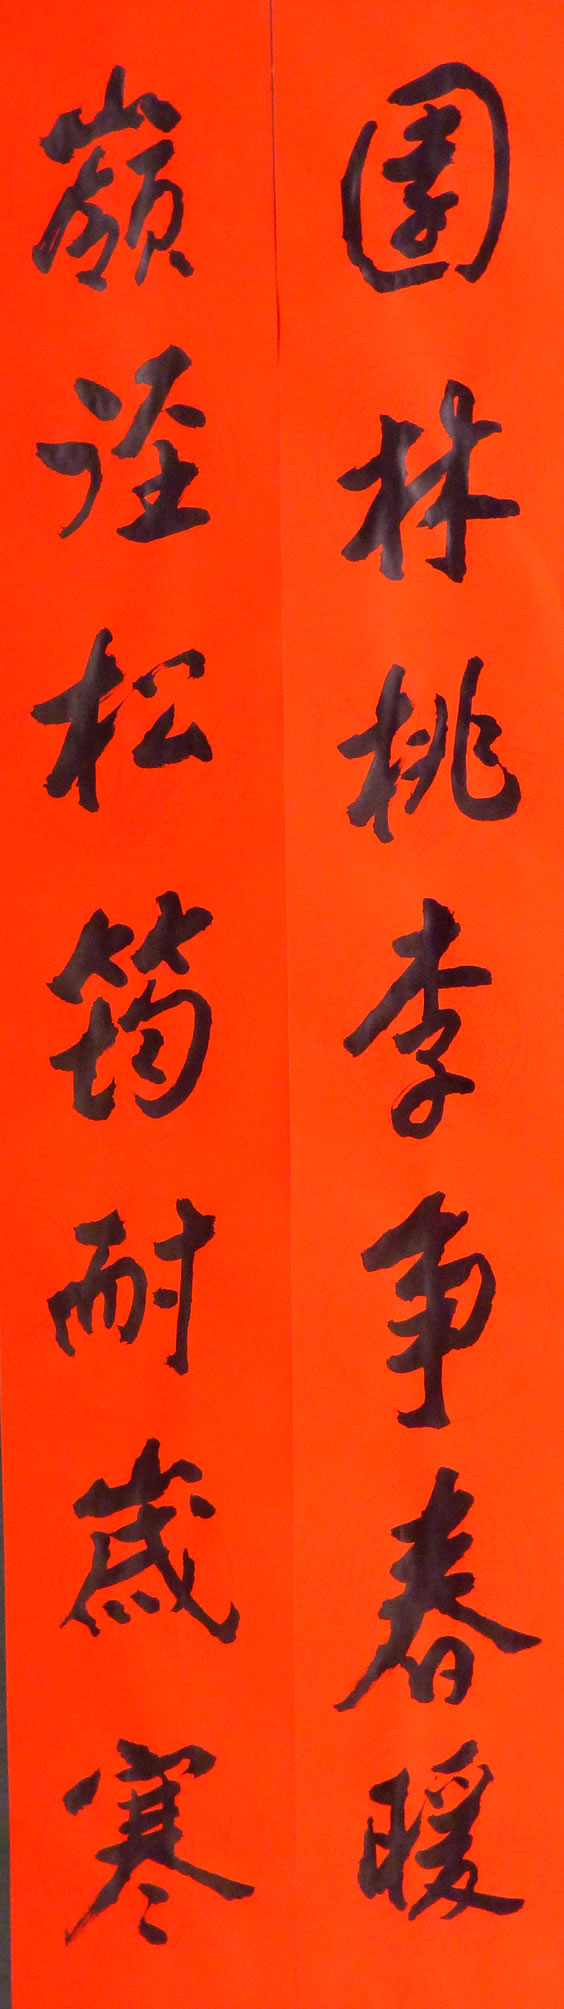 園林桃李争春暖
嶺径松筠耐歲寒